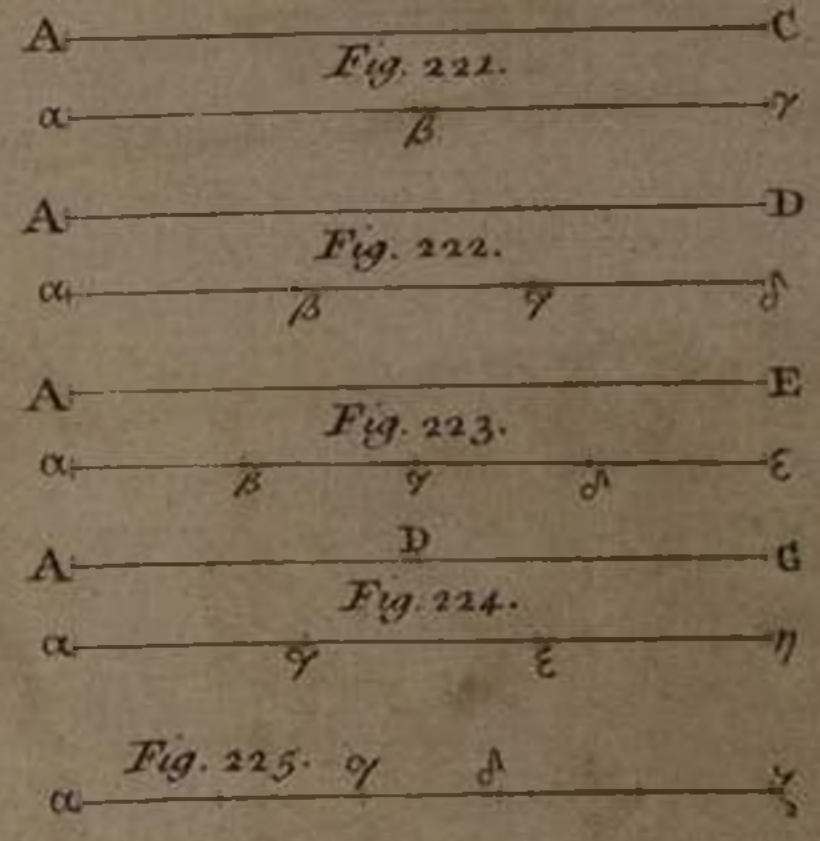 A C
Fig. 221.
α β γ
A D
Fig. 222.
α β γ δ
A E
Fig. 223.
α β γ δ ε
A D G
Fig. 224.
α γ ε η
Fig. 225. γ δ
α ζ